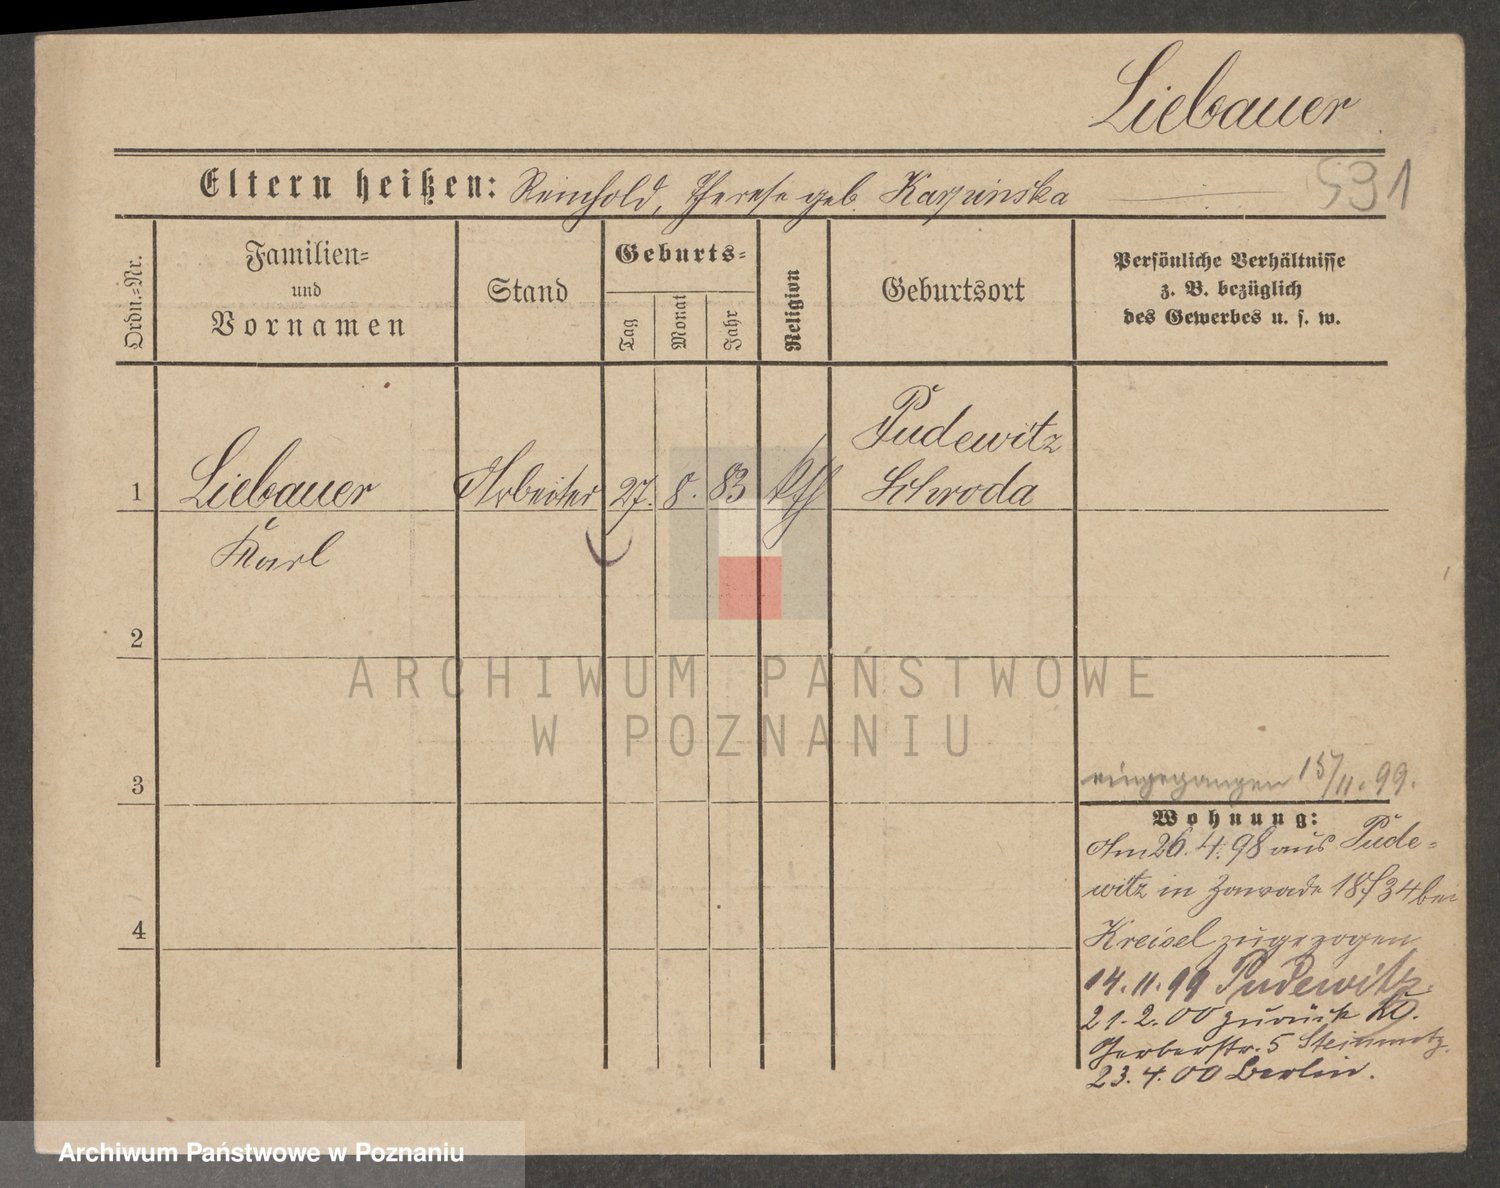 Liebauer
Eltern heißen: Reinhold, Therese geb. Karpinska
591
Ordn.-Nr.
Familien-
und
Vornamen
Stand
Geburts-
Tag
Monat
Jahr
Religion
Geburtsort
Persönliche Verhältnisse
z. B. bezüglich
des Gewerbes u. s. w.
1
Liebauer
Karl
Arbeiter
27. 8. 83
kth
Pudewitz
Schroda
2
3
4
eingegangen 15/11. 99.
Wohnung:
Am 26. 4. 98 aus Pude-
witz in Zawade 18/34 bei
Kreisel zugezogen
14. 11. 99 Pudewitz.
21. 2. 00 zurück
Gerberstr. 5 Steinmetz.
23. 4. 00 Berlin.
ARCHIWUM PAŃSTWOWE
W POZNANIU
Archiwum Państwowe w Poznaniu